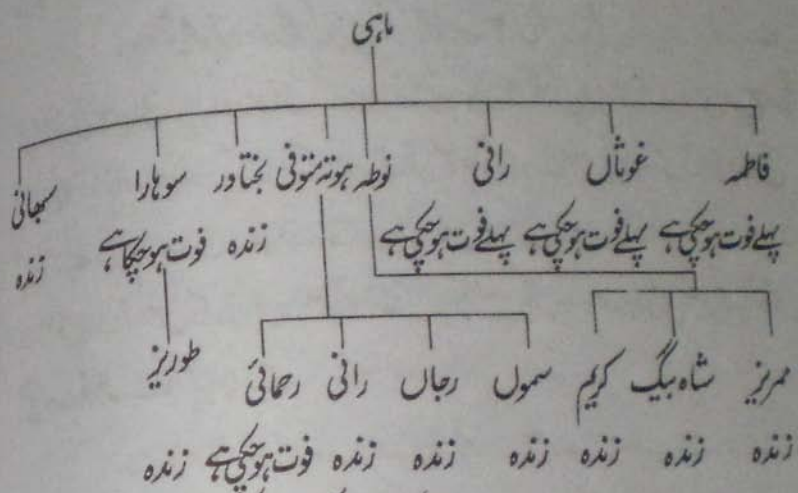 ماہی
فاطمہ غوثاں رانی نوطہ ہوتہ متوفی بختاور سوہارا سبھائی
پہلے فوت ہوچکی ہے پہلے فوت ہوچکی ہے پہلے فوت ہوچکی ہے زندہ فوت ہوچکا ہے زندہ
ممریز شاہ بیگ کریم سموں رجاں رانی رحمائی طوریز
زندہ زندہ زندہ زندہ زندہ زندہ فوت ہوچکی ہے زندہ